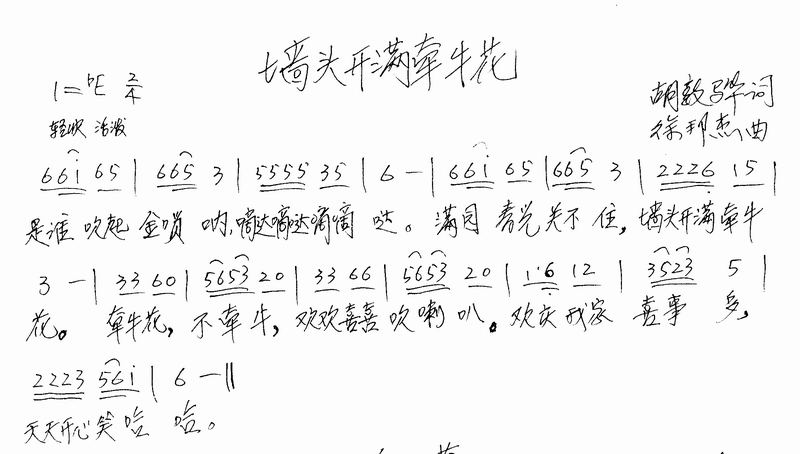 墙头开满牵牛花
1=ᵇE 2/4
胡敦骅词
轻快 活泼
徐邦杰曲
66i 65 | 665 3 | 5555 35 | 6 — | 66i 65 | 665 3 | 2226 15 |
是谁吹起金唢呐,嘀达嘀达嘀嘀哒。满园春光关不住,墙头开满牵牛
3 — | 33 60 | 5653 20 | 33 66 | 5653 20 | 1·6 12 | 3523 5 |
花。牵牛花,不牵牛,欢欢喜喜吹喇叭。欢庆我家喜事多,
2223 56i | 6 — ||
天天开心笑哈哈。